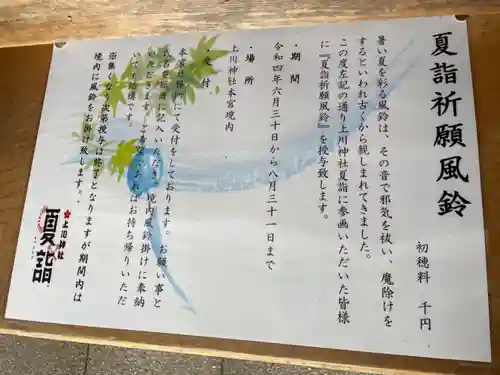 夏詣祈願風鈴
初穂料 千円
暑い夏を彩る風鈴は、その音で邪気を祓い、魔除けを
するといわれ古くから親しまれてきました。
この度左記の通り上川神社夏詣に参画いただいた皆様
に『夏詣祈願風鈴』を授与致します。
・期間
令和四年六月三十日から八月三十一日まで
・場所
上川神社本宮境内
・受付
本宮社務所にて受付をしております。お願い事と
氏名を短冊に記入いただき、境内風鈴掛けに奉納
いただきます。ご希望であればお持ち帰りいただ
いても結構です。
※無くなり次第授与は終了となりますが期間内は
境内に風鈴をお掛け致します。
上川神社
夏詣